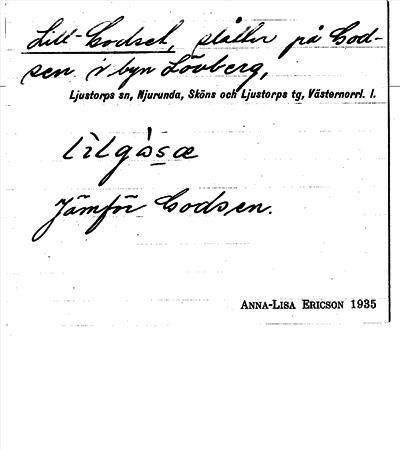 Lill-Godset, ställer på God-
sen i byn Lövberg,
Ljustorps sn, Njurunda, Sköns och Ljustorps tg, Västernorrl. l.
lìlgòsæ
Jämför Godsen.
ANNA-LISA ERICSON 1935